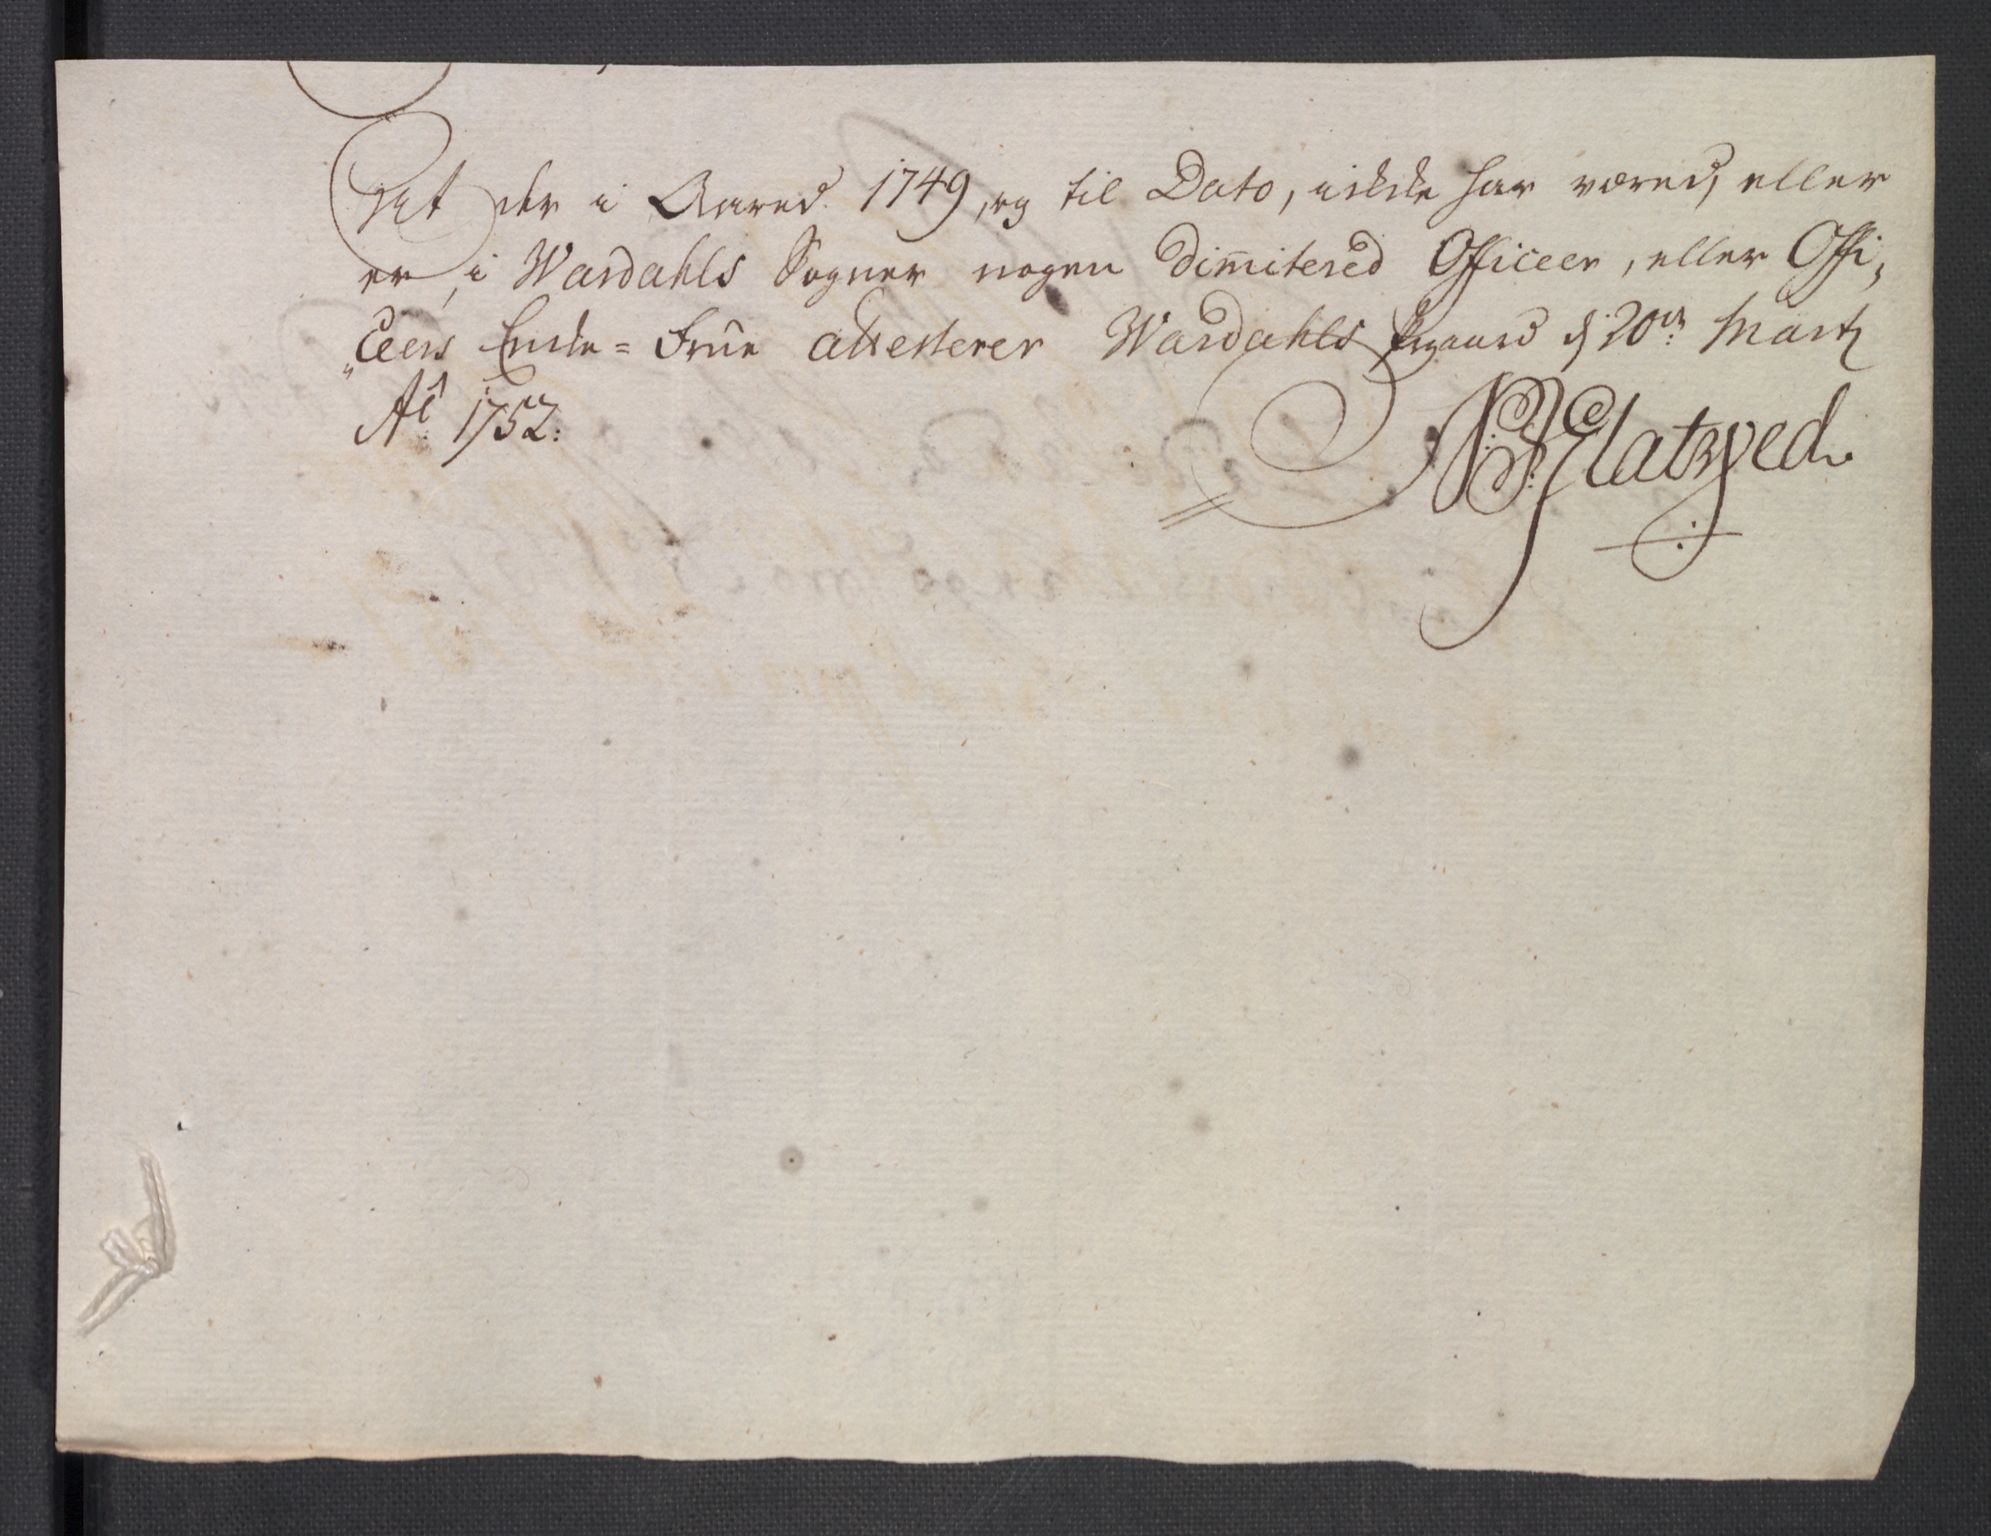 At der i Aared 1749, og til Dato, ikke har været, eller
er i Wardahls Sogner nogen Dimitered Officeer, eller Offi„
„ceers Encke=Frue attesterer Wardahls Prgaard d 20de Marty
Aô 1752.
Flatwed.